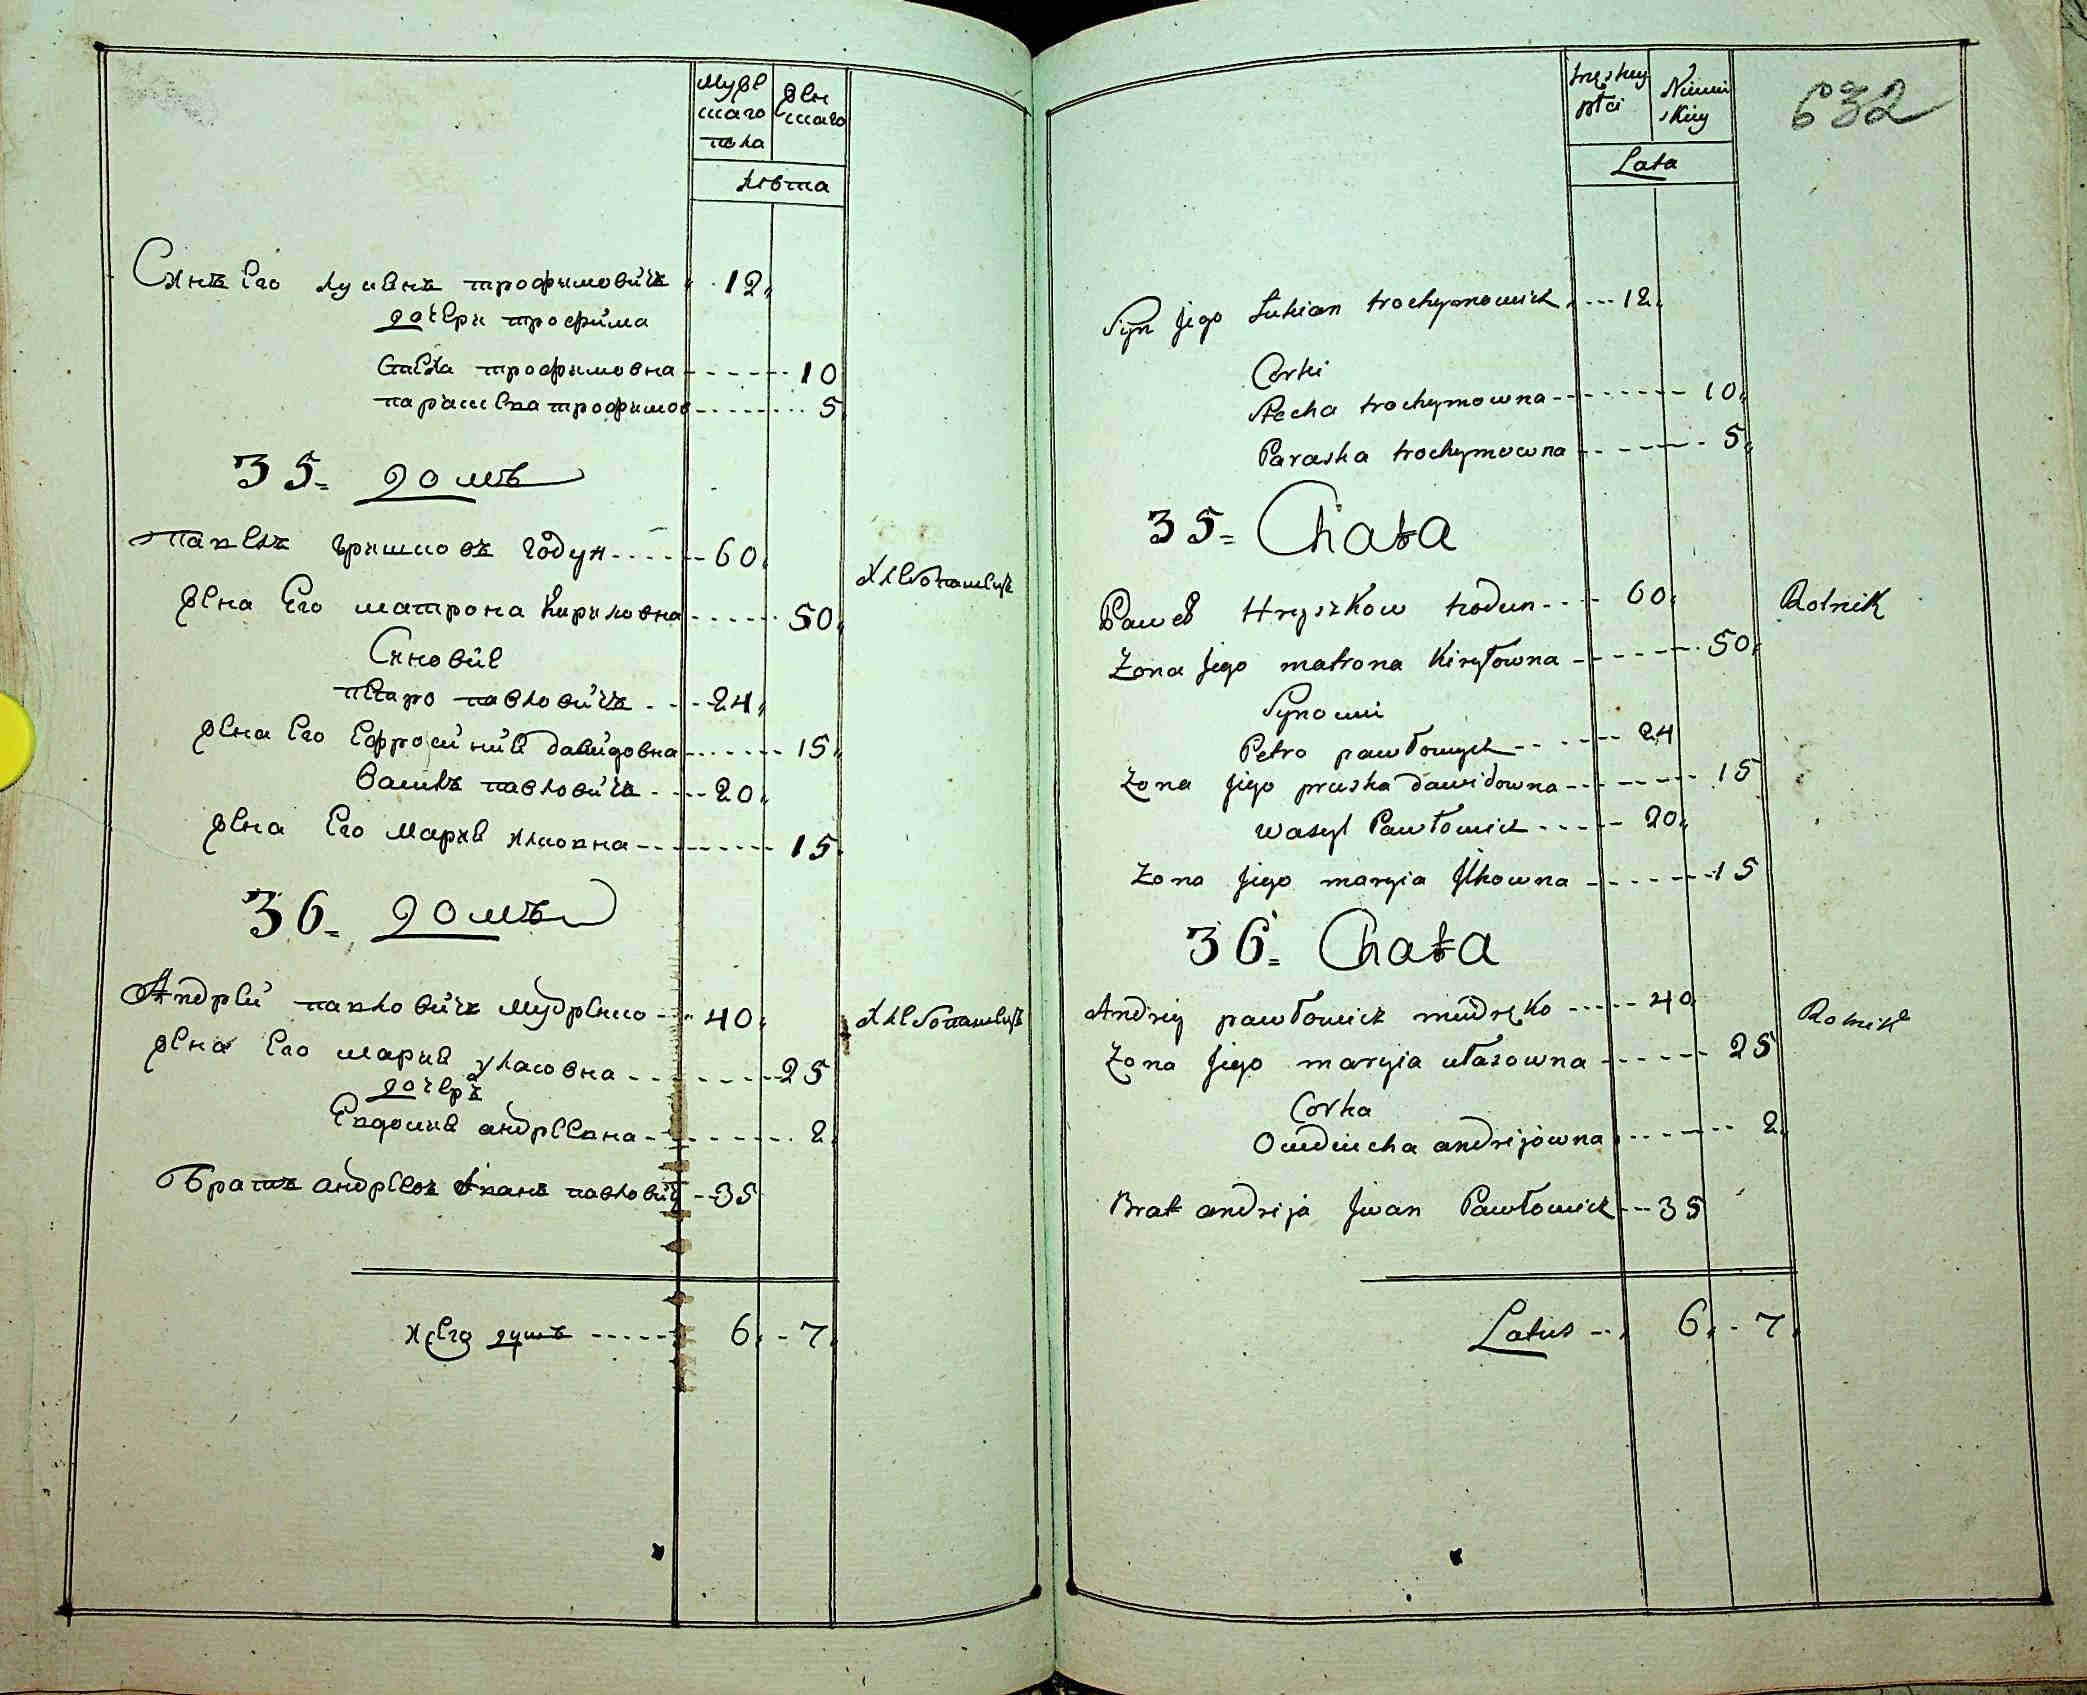 Муже
шаго
пола
Жен
шаго
Лѣта
Синъ Его Лукиянъ трофимовичъ 12
дочери трофима
Стеха трофимовна 10
парасковка трофимов 5
35 = домъ
Павелъ Гришковъ Годун 60 Хлебопашецъ
Жена Его матрона Кириловна 50
Синовие
петро павловичъ 24
Жена Его Ефросиния давидовна 15
Василь павловичъ 20
Жена Его Мария илковна 15
36 = домъ
Андрей павловичъ мудренко 40 Хлебопашецъ
Жена Его мария уласовна 25
дочеръ
Евдокия андреевна 2
Братъ андреевъ Иванъ павлович 35
всего душъ 6 - 7
męskiey
płci
Niewi
skiey
632
Lata
Syn Jego Łukian trochymowicz 12
Corki
Stecha trochymowna 10
Paraska trochymowna 5
35 = Chata
Paweł Hryszkow hodun 60 Rolnik
Zona Jego matrona Kiryłowna 50
Synowi
Petro pawłowycz 24
Zona Jego pruska dawidowna 15
Wasyl Pawłowicz 20
Zona Jego maryia Jlkowna 15
36 = Chata
Andrey pawłowicz mudręko 40 Rolnik
Zona Jego maryia ułasowna 25
Corka
Owdiucha andrijowna 2
Brat andrija Jwan Pawłowicz 35
Latus 6 - 7